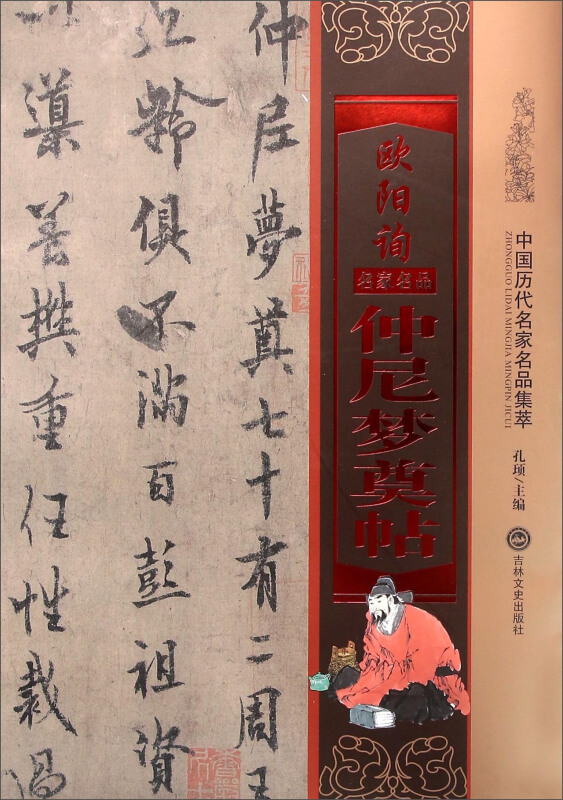 中国历代名家名品集萃
ZHONGGUO LIDAI MINGJIA MINGPIN JICUI
孔顼/主编
吉林文史出版社
欧阳询
名家名品
仲尼梦奠帖
仲尼夢奠七十有二周王
九齡俱不滿百彭祖資
以導養樊重任性裁過